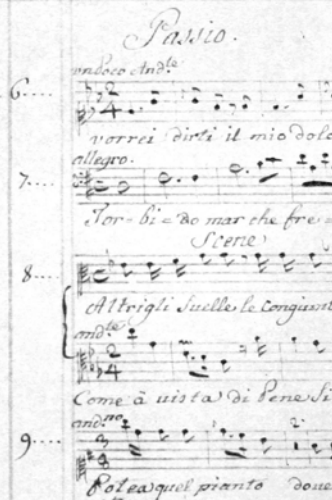 Passio.
6.... un Poco And.te
2/4
vorrei dirti il mio dolo
allegro.
7....
Tor=bi=do mar che fre=
Scene
8....
Altrigli suelle le congiunt
and.te
2/4
Come à vista di Pene Si
and.no
9....
3/8
Potea quel pianto dove